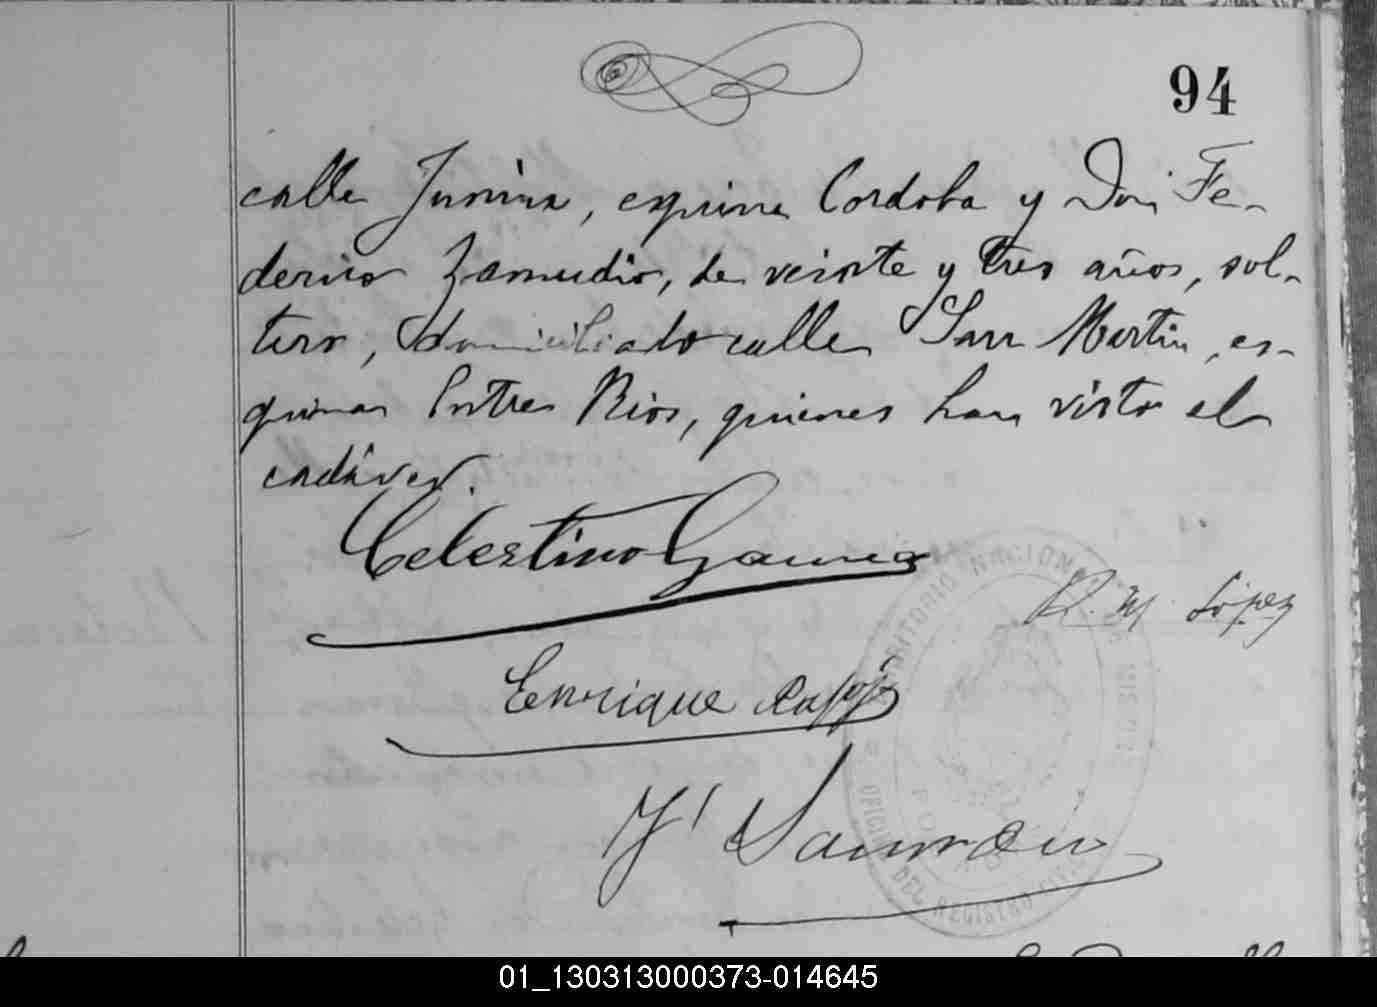 94
calle Junín, esquina Cordoba y Don Fe-
derico Zamudio, de veinte y tres años, sol-
tero, domiciliado calle San Martin, es-
quina Entre Rios, quienes han visto el
cadáver.
Celestino Gauna
R. M. López
Enrique
F
TERRITORIO NACIONAL
OFICINA DEL REGISTRO CIVIL
01_130313000373-014645